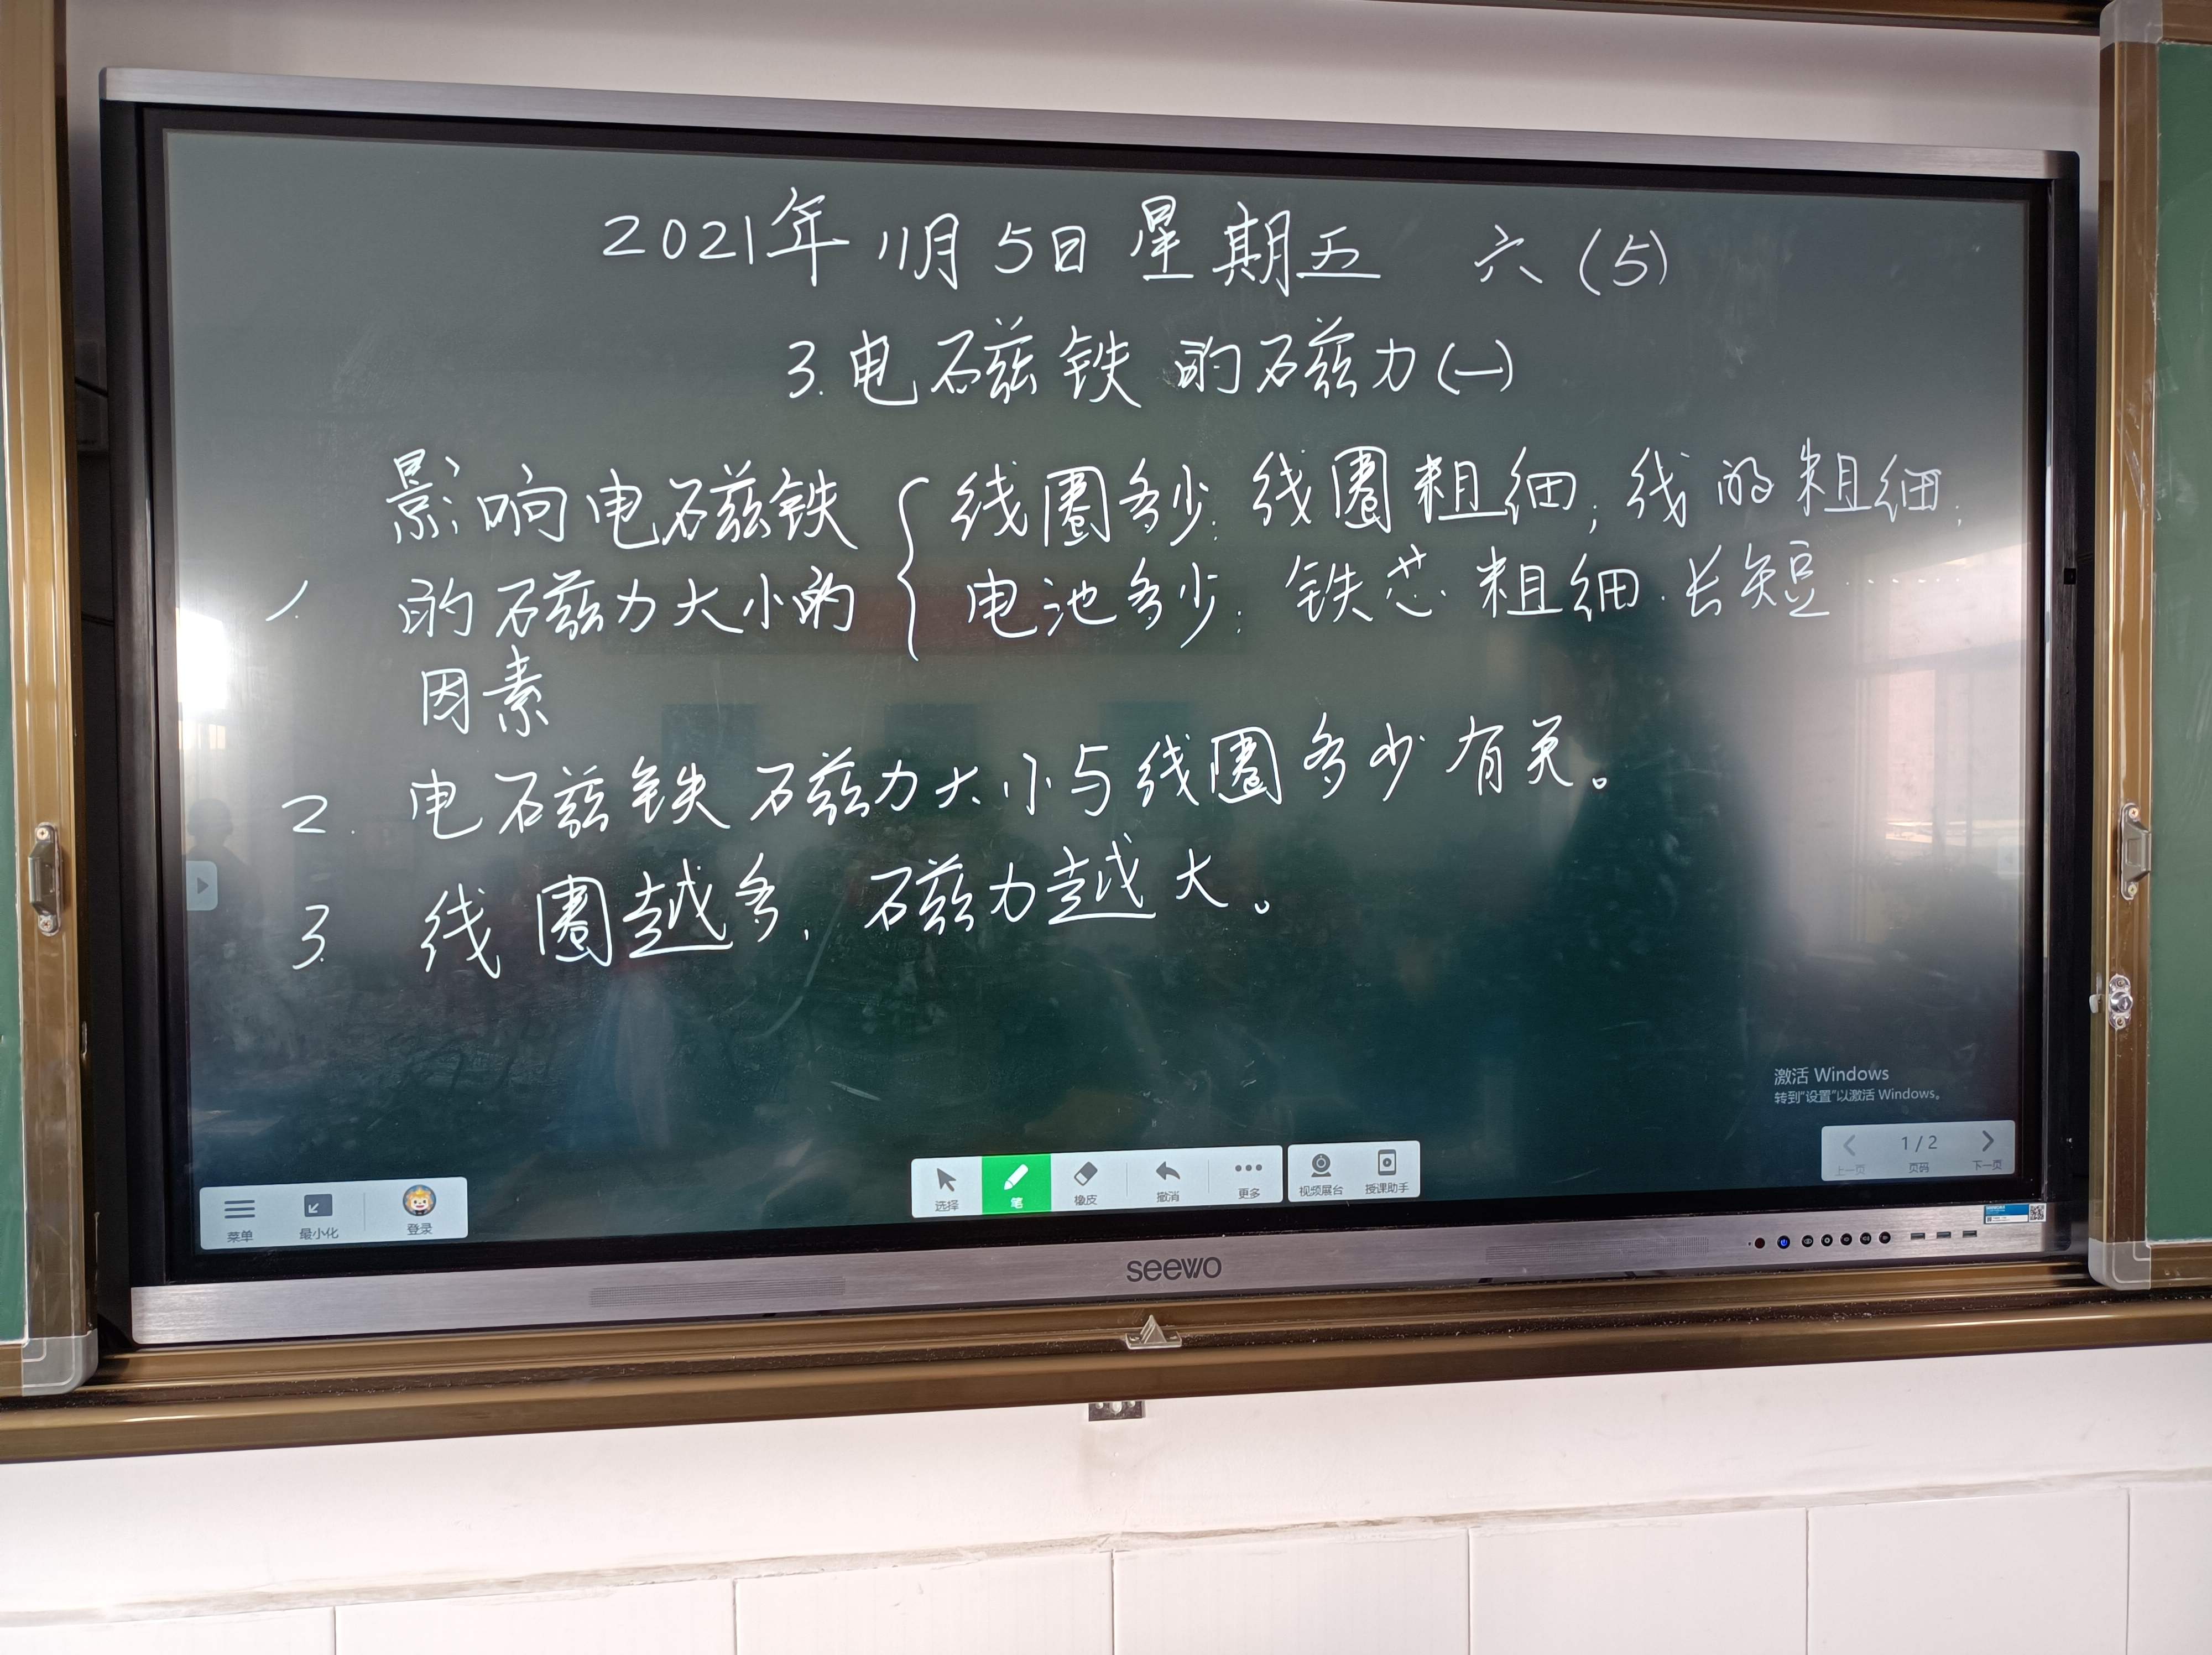 2021年11月5日星期五 六(5)
3.电磁铁的磁力(一)
影响电磁铁{线圈多少;线圈粗细;线的粗细;
1. 的磁力大小的 电池多少;铁芯粗细.长短……
因素
2. 电磁铁磁力大小与线圈多少有关。
3. 线圈越多,磁力越大。
激活 Windows
转到"设置"以激活 Windows。
1 / 2
上一页 页码 下一页
选择 笔 橡皮 撤消 更多 视频展台 授课助手
菜单 最小化 登录
seewo